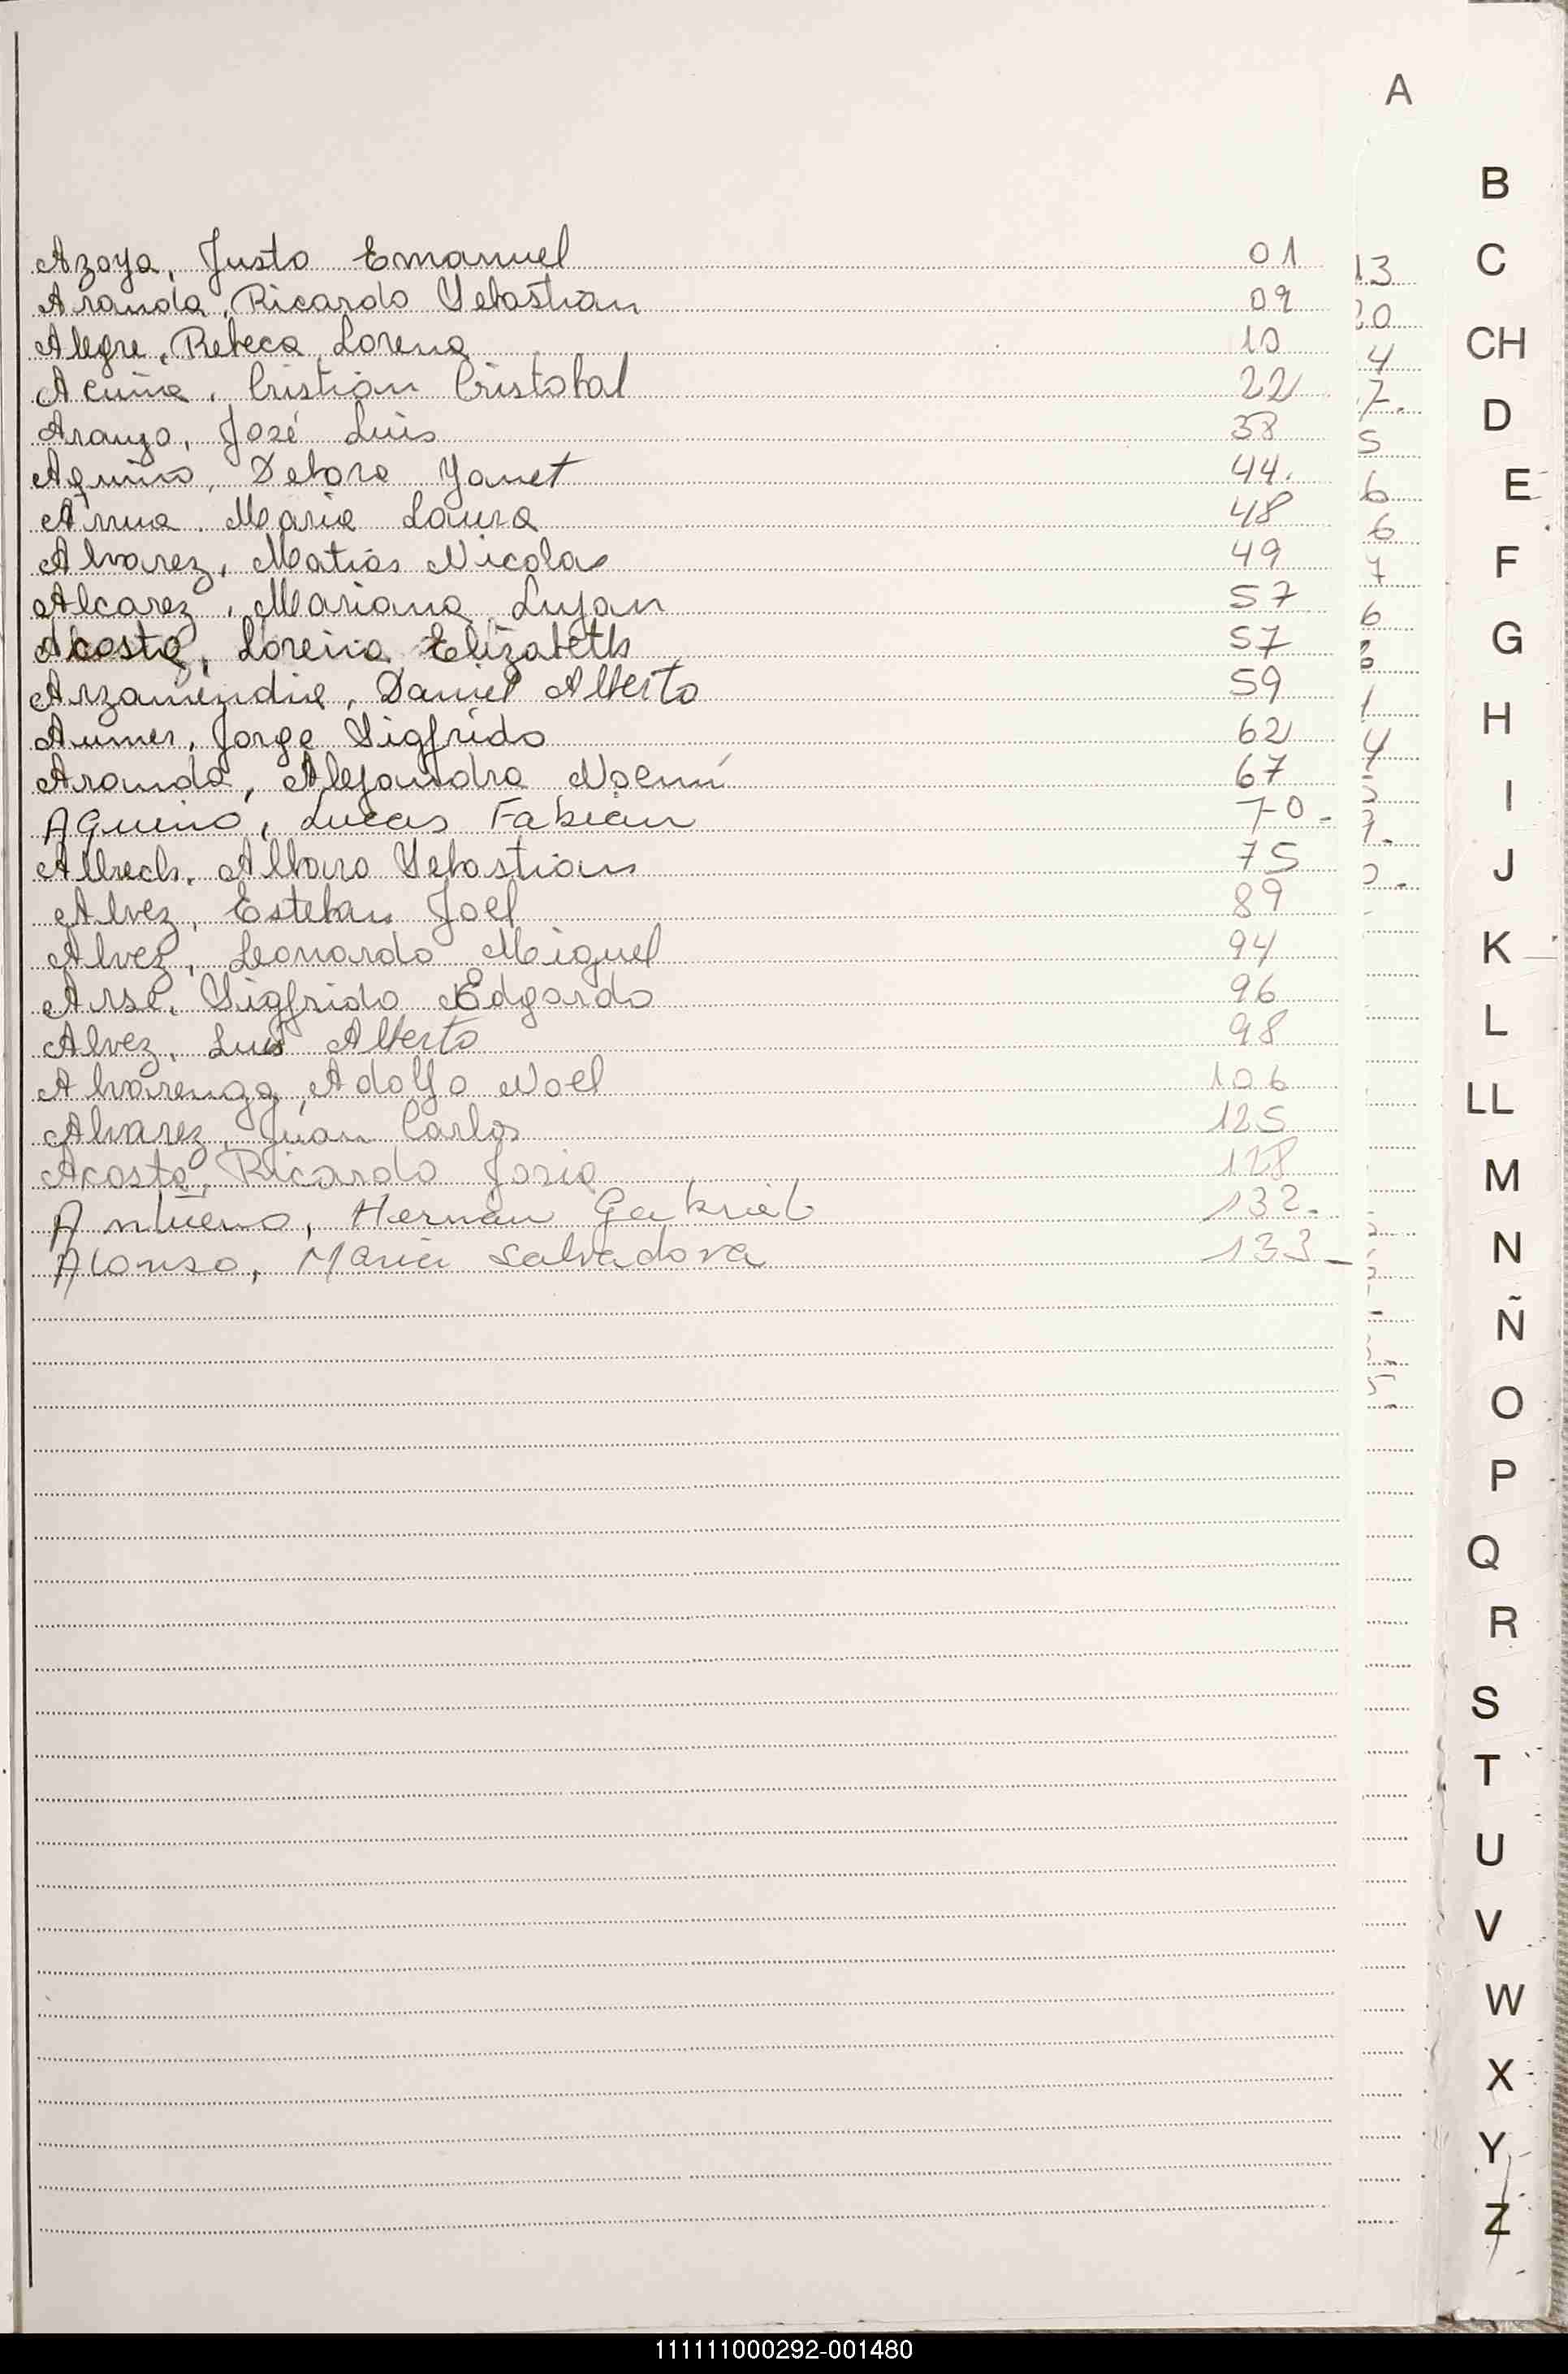 A
Azoya, Justo Emanuel 01
Aranda, Ricardo Sebastian 09
Alegre, Rebeca Lorena 10
Acuña, Cristian Cristobal 22
Araujo, José Luis 38
Aquino, Debora Yanet 44.
Arrua, Maria Laura 48
Alvarez, Matias Nicolas 49
Alcarez, Mariana Lujan 57
Acosta, Lorena Elizabeth 57
Arzamendia, Daniel Alberto 59
Aumer, Jorge Sigfrido 62
Aranda, Alejandra Noemí 67
Aquino, Lucas Fabian 70-
Albrech, Alvaro Sebastian 75
Alvez, Esteban Joel 89
Alvez, Leonardo Miguel 94
Arse, Sigfrido Edgardo 96
Alvez, Luis Alberto 98
Alvarenga, Adolfo Noel 106
Alvarez, Juan Carlos 125
Acosta, Ricardo 128
Hernan Gabriel 132-
Alonso, Maria Salvadora 133-
B
C
CH
D
E
F
G
H
I
J
K
L
LL
M
N
Ñ
O
P
Q
R
S
T
U
V
W
X
Y
Z
111111000292-001480